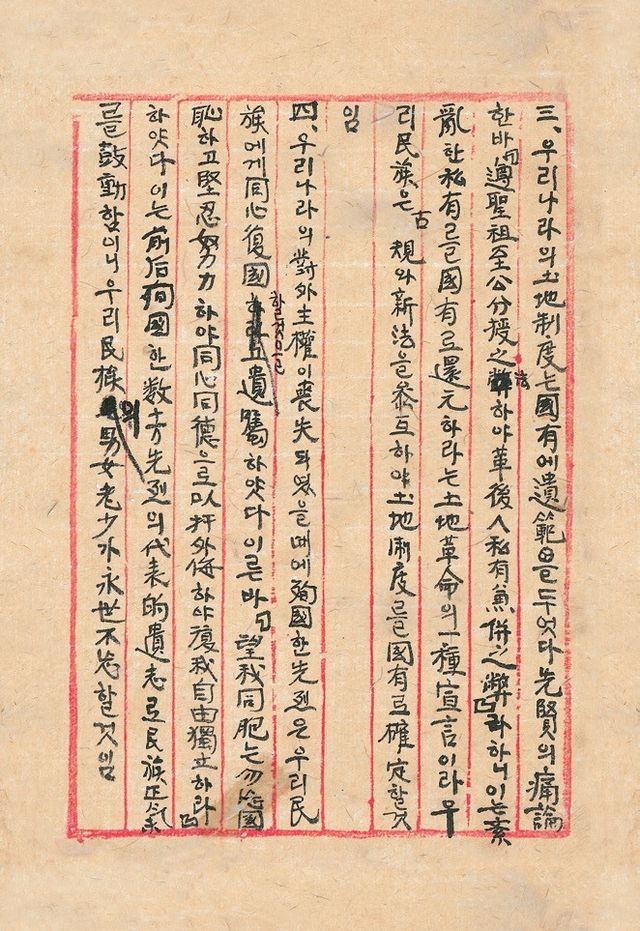 三、우리나라의土地制度는國有에遺範을두엇다先賢의痛論
한바「遵聖祖至公分授之法하야革後人私有兼倂之弊」라하니이는紊
亂한私有를國有로還元하라는土地革命의一種宣言이라우
리民族은古規와新法을參互하야土地制度를國有로確定할것
임
四、우리나라의對外主權이喪失되엿을때에殉國한先烈은우리民
族에게同心復國할것을遺囑하얏다이른바「望我同胞는勿忘國
恥하고堅忍努力하야同心同德으로以扞外侮하야復我自由獨立하라」
하얏다이는前后殉國한数十万先烈의代表的遺志로民族正气
를鼓動함이니우리民族의男女老少가永世不忘할것임